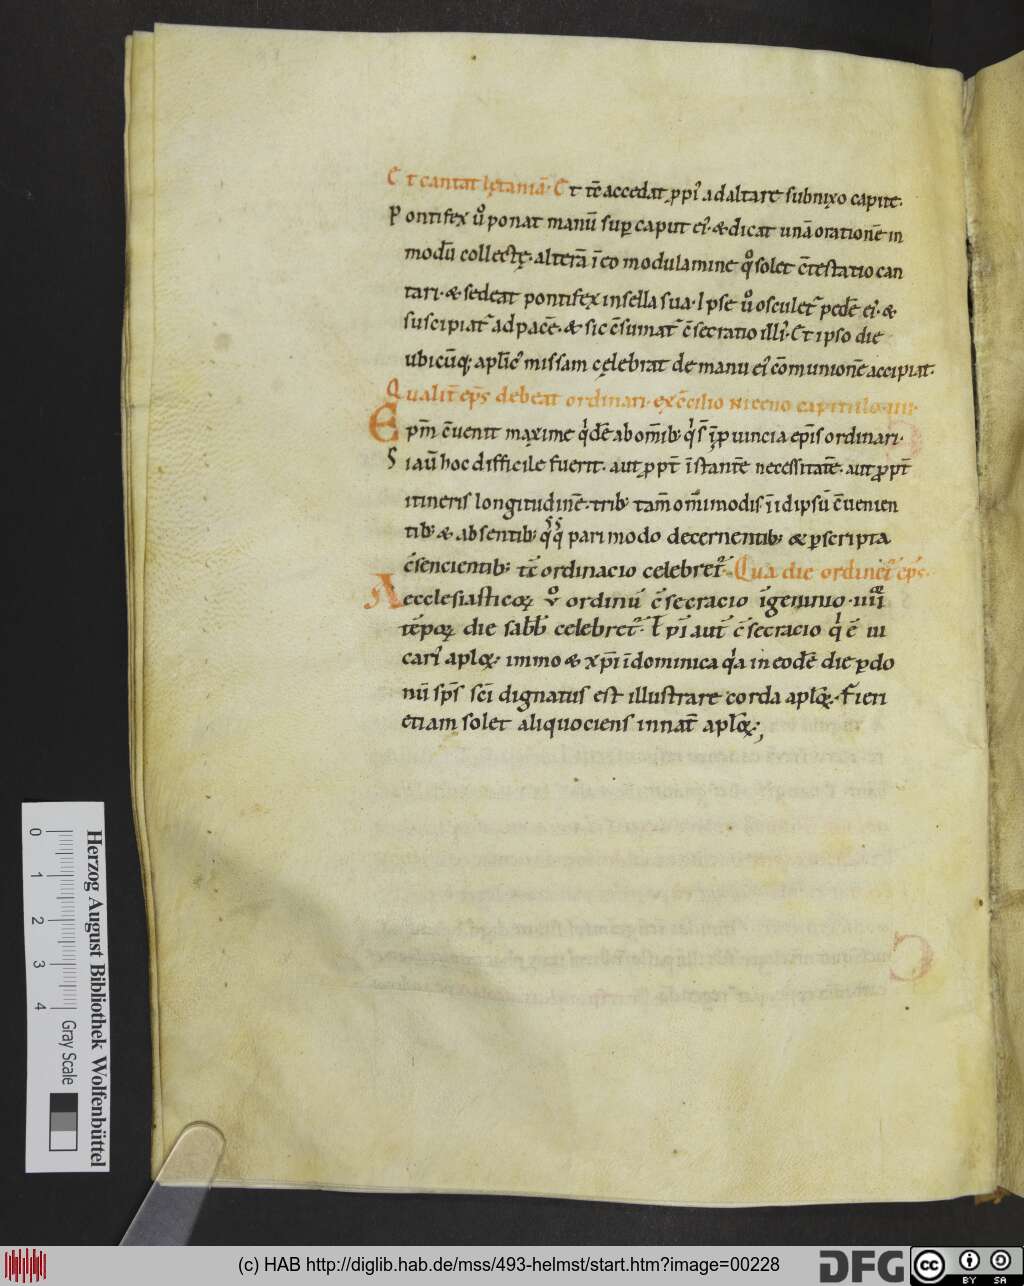 Et cantat lętaniā. Et tē accedat ꝓpī ad altare subnixo capite.
Pontifex ů ponat manū suꝑ caput ei᾿. & dicat unā orationē in
modū collectę. alterā ī eo modulamine q̊ solet c̄testatio can
tari. & sedeat pontifex in sella sua. Ipse ů osculet᾿ pedē ei᾿. &
suscipiat᾿ ad pacē. & sic c̄sumat᾿ c̄secratio illi᾿. Et ipso die
ubicūq; aplīc᾿ missam cęlebrat de manu ei᾿ cōmunionē accipiat.
Qualit̄ ep̄s debeat ordinari. ex c̄cilio niceno capitulo. iiii.
Epm̄ c̄uenit maxime qͥdē ab om̄ib; qͥ s̄ ī ꝓuincia ep̄is ordinari.
Si aū hoc difficile fuerit. aut ꝓpt̄ īstantē necessitatē. aut ꝓpt̄
itineris longitudinē. trib; tam̄ om̄imodis ī idipsū c̄uenien
tib; & absentib; qͦsqͦ pari modo decernentib; & ꝑscripta
c̄sencientib; tc̄ ordinacio celebret᾿. Qua die ordinet᾿ ep̄s.
Aecclesiasticoꝝ v̊ ordinū c̄secracio ī genuuo. iiiiͦꝝ
tēpoꝝ die sabb̄ celebret᾿. Ipī aut̄ c̄secracio qͥ ē ui
cari᾿ aploꝝ. immo & xp̄i ī dominica qͥa in eodē die ꝑdo
nū sp̄s sc̄i dignatus est illustrare corda aploꝝ. Fieri
etiam solet aliquociens in nat̄ aploꝝ;
Herzog August Bibliothek Wolfenbüttel
0 1 2 3 4
Gray Scale
(c) HAB http://diglib.hab.de/mss/493-helmst/start.htm?image=00228
DFG
cc BY SA